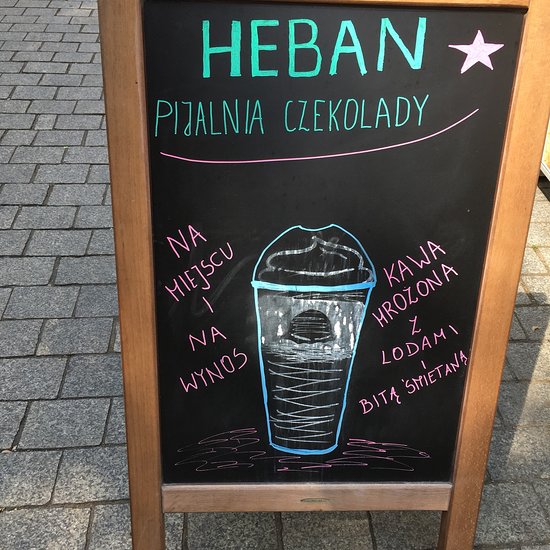 HEBAN
PIJALNIA CZEKOLADY
NA
MIEJSCU
I
NA
WYNOS
KAWA
MROŻONA
Z
LODAMI
I
BITĄ ŚMIETANĄ